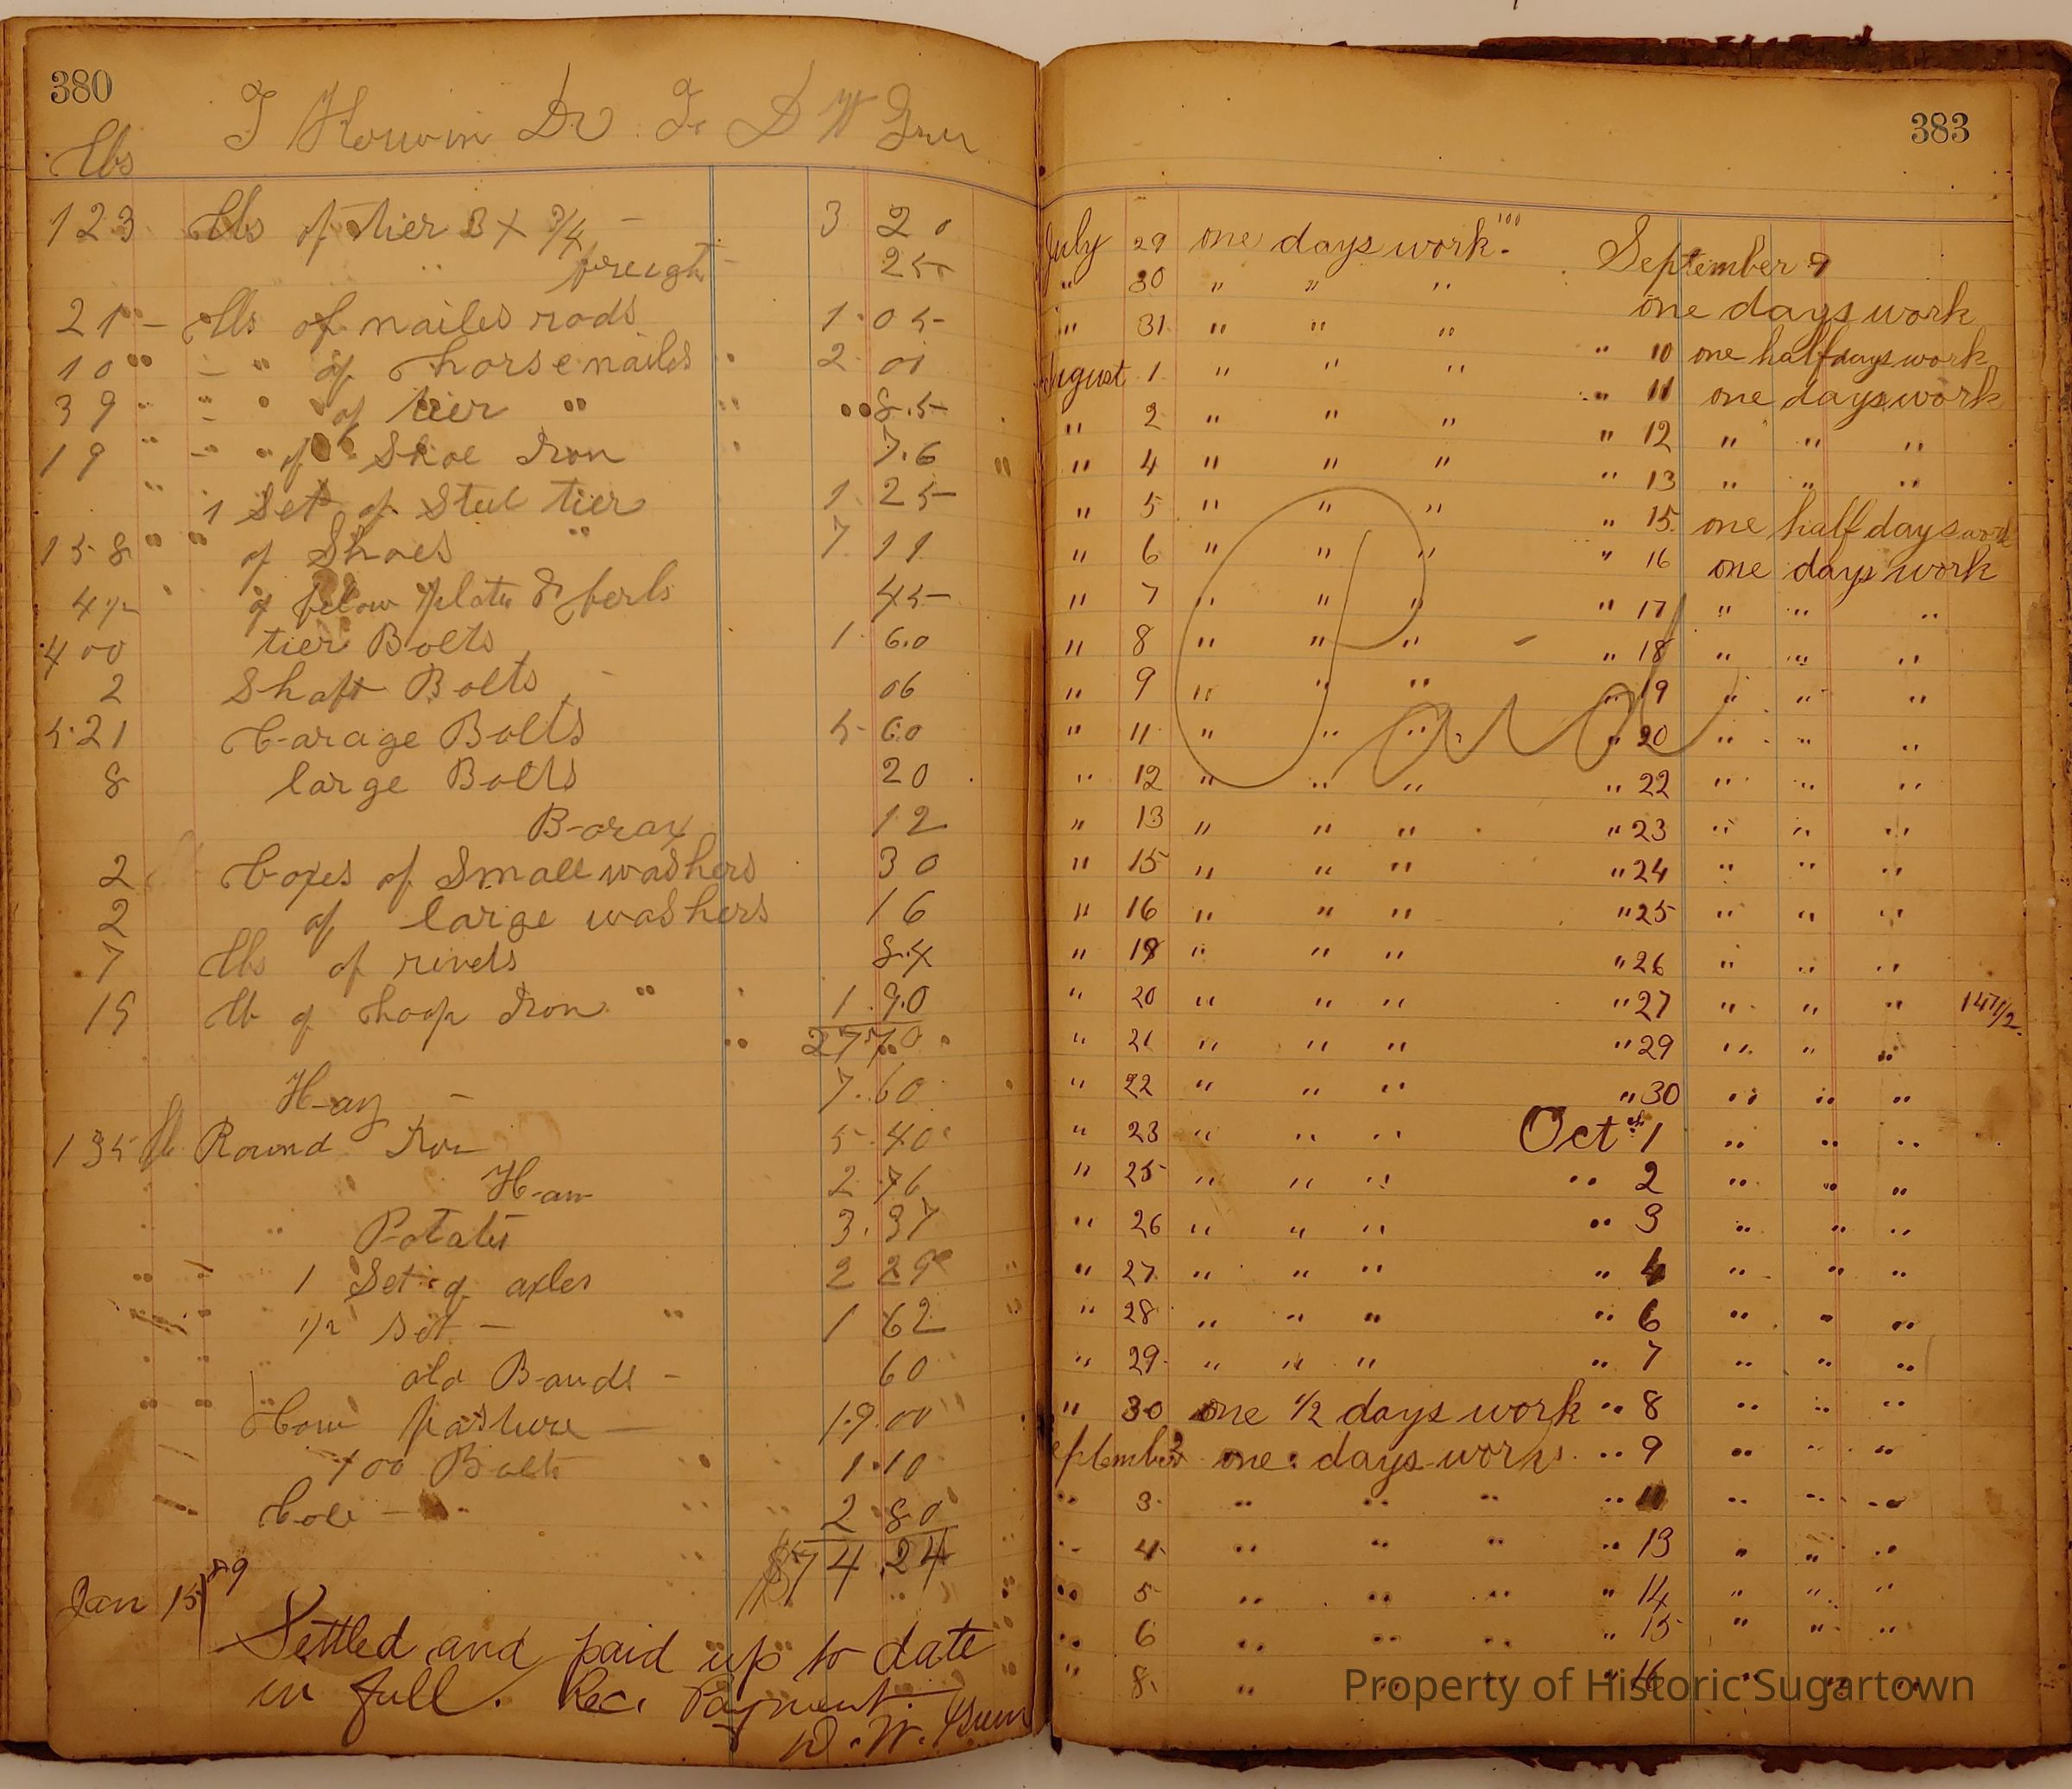 380
T Dr To D W
Lbs
123 Lbs of tier 3 X 3/4 — 3 20
" freight — 25
21 " — Lbs of nailes rods 1.05
10 " — " of horse nailes " 2 01
39 " — " of tier " " 85
19 " — " of Shoe Iron " 76
" 1 Set of Steel tier 1 25
158 " " of Shoes " 7 11
4 1/2 " of felow plates & ferls 45
400 tier Bolts 1.60
2 Shaft Bolts — 06
521 Carage Bolts 5 60
8 large Bolts 20
Borax 12
2 Boxes of Small washers 30
2 of large washers 16
7 Lbs of rivets 84
19 Lb of hoop Iron " 1.90
27 70
Hay — 7.60
135 Lb Round Iron 5.40
Ham 2 76
Potates 3.37
1 Set of axles 2 29
1/2 Set — " 1 62
old Bands — 60
Cow pasture — 19.00
100 Bolts 1.10
Cole — 2.80
$74.24
Jan 15/89
Settled and paid up to date
in full. Rec. Payment.
D. W.
383
July 29 one days work. 100
" 30 " " "
" 31 " " "
August 1 " " "
" 2 " " "
" 4 " " "
" 5 " " "
" 6 " " "
" 7 " " "
" 8 " " "
" 9 " " "
" 11 " " "
" 12 " " "
" 13 " " "
" 15 " " "
" 16 " " "
" 19 " " "
" 20 " " "
" 21 " " "
" 22 " " "
" 23 " " "
" 25 " " "
" 26 " " "
" 27 " " "
" 28 " " "
" 29 " " "
" 30 one 1/2 days work
eptember 2 one days work
" 3 " " "
" 4 " " "
" 5 " " "
" 6 " " "
" 8 " " "
Paid
September 9
one days work
" 10 one half days work
" 11 one days work
" 12 " " "
" 13 " " "
" 15 one half days work
" 16 one days work
" 17 " " "
" 18 " " "
" 19 " " "
" 20 " " "
" 22 " " "
" 23 " " "
" 24 " " "
" 25 " " "
" 26 " " "
" 27 " " " 147 1/2
" 29 " " "
" 30 " " "
Oct 1 " " "
" 2 " " "
" 3 " " "
" 4 " " "
" 6 " " "
" 7 " " "
" 8 " " "
" 9 " " "
" 11 " " "
" 13 " " "
" 14 " " "
" 15 " " "
" 16 " " "
Property of Historic Sugartown